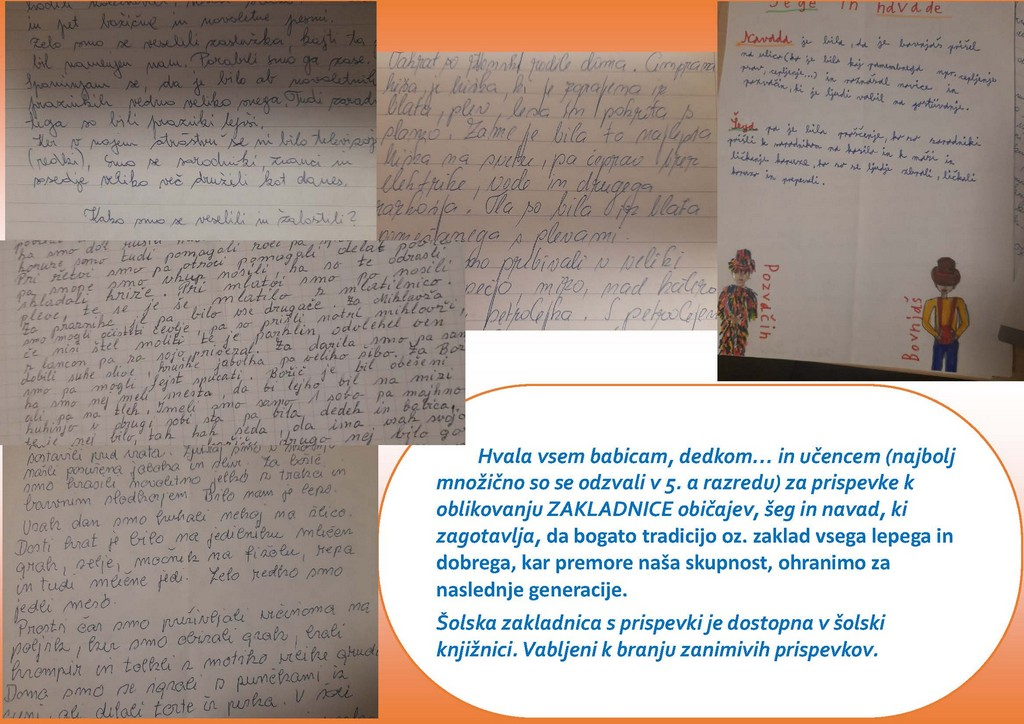 in pet božične in novoletne pesmi.
Zelo smo se veselili zaslužka, kajti ta
bil namenjen nam. Porabili smo ga zase.
Spominjam se, da je bilo ob novoletnih
praznikih vedno veliko snega. Tudi zarad
tega so bili prazniki lepši.
Ker v mojem otroštvu še ni bilo televizije
(redki), smo se sorodniki, znanci in
sosedje veliko več družili kot danes.
Kako smo se veselili in žalostili?
Takrat so bila doma. Cimprana
hiša je hiška, ki je
blata, plev, lesa in pokrita s
slamo. Zame je bila to najlepša
hiška na svetu, pa čeprav brez
elektrike, vode in drugega
razkošja. Tla so bila iz blata
pomešanega s plevami.
prebivali v veliki
pečjo, mizo, nad katero
petrolejka. S petrolejem
Šege in navade
Navada je bila, da je bovnjaš prišel
na ulico (ko je bilo kaj pomembnega npr. cepljenje
psov, cepljenje...) in naznanil novice in
pozvačin, ki je ljudi vabil na gostüvanje.
Šega pa je bila proščenje, ko so sorodniki
prišli k sorodnikom na kosilo in k maši in
ličkanje koruze, ko so se ljudje zbrali, ličkali
koruzo in prepevali.
Pozvačin
Bovnjaš
smo tudi pomagali
Pri žetvi smo pa otroci pomagali delat pos
pa snope smo vkup nosili, ka so te odrasli
skladali križe. Pri mlatvi smo pa nosili
pleve, te se je še mlatilo z mlatilnico.
Za praznike je pa bilo vse drugače. Za Miklavža
smo mogli očistiti čevlje, pa so prišli
če nisi štel moliti te je parklin odpelal ven
z lancom pa za sojo privezal. Za darila smo pa sam
dobili suhe slive, hruške, jabolka pa veliko šibo. Za Bož
smo pa mogli fejst špucati. Božič je bil obešeni
ka smo nej meli mesta, da bi lejko bil na mizi
ali pa na tleh. Imeli smo samo 1 sobo pa majhno
kuhinjo v drugi sobi sta pa bila dedek in babica.
Te je nej bilo tak kak seda, da ima vsak svojo
postavili pred vrata. Zjutraj
našli posušena jabolka in sliv. Za božič
smo krasili novoletno jelko s trakov in
barvnim sladkorjem. Bilo nam je lepo.
Vsak dan smo kuhali nekaj na žlico.
Dosti krat je bilo na jedilniku mlečen
grah, zelje, močnik na fižolu, repa
in tudi mlečne jedi. Zelo redko smo
jedli meso.
Prosti čas smo preživljali večinoma na
poljih, kjer smo obirali grah, brali
krompir in tolkli z motiko velike grude
Doma smo se igrali s punčkami iz
ali delali torte iz peska. V šoli
Hvala vsem babicam, dedkom... in učencem (najbolj
množično so se odzvali v 5. a razredu) za prispevke k
oblikovanju ZAKLADNICE običajev, šeg in navad, ki
zagotavlja, da bogato tradicijo oz. zaklad vsega lepega in
dobrega, kar premore naša skupnost, ohranimo za
naslednje generacije.
Šolska zakladnica s prispevki je dostopna v šolski
knjižnici. Vabljeni k branju zanimivih prispevkov.